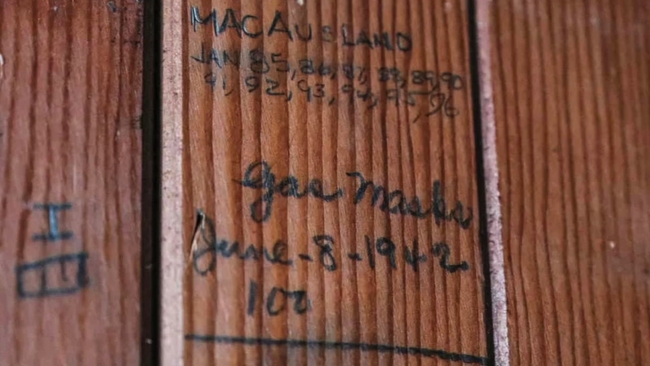 MACAUSLAND
JAN 85, 86, 87, 88, 89, 90
91, 92, 93, 94, 95, 96
Gas Masks
June-8-1942
100
I